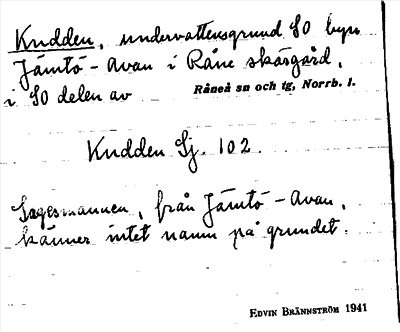 Kudden, undervattensgrund SO byn
Jämtö-Avan i Råne skärgård,
i SO delen av Råneå sn och tg, Norrb. l.
Kudden Sj. 102.
Sagesmannen, från Jämtö-Avan,
känner intet namn på grundet.
EDVIN BRÄNNSTRÖM 1941